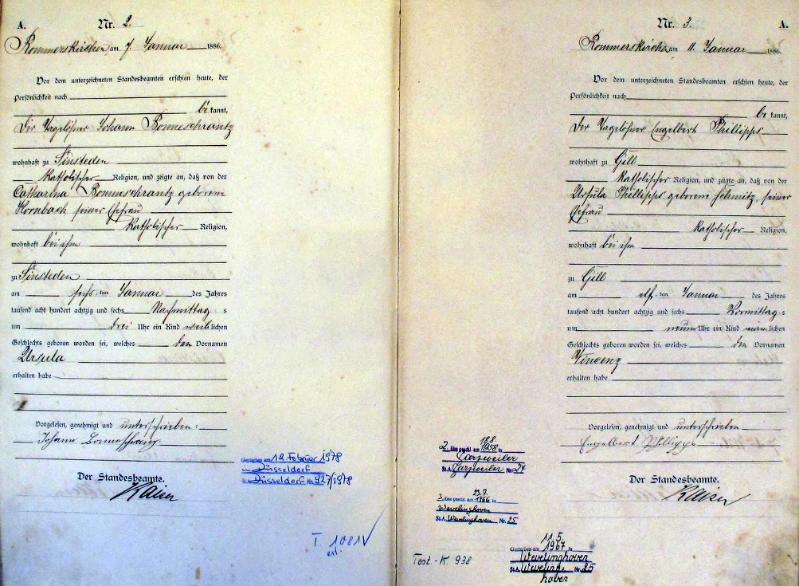 A. Nr. 2.
Rommerskirchen am 7 Januar 1886.
Vor dem unterzeichneten Standesbeamten erschien heute, der
Persönlichkeit nach
bekannt,
Der Tagelöhner Johann Bommeschrantz
wohnhaft zu Sinsteden
Katholischer Religion, und zeigte an, daß von der
Catharina Bommeschrantz geborene
Hornbach seiner Ehefrau
Katholischer Religion,
wohnhaft bei ihm
zu Sinsteden
am sechsten Januar des Jahres
tausend acht hundert achtzig und sechs Nachmittags
um drei Uhr ein Kind weiblichen
Geschlechts geboren worden sei, welches den Vornamen
Ursula
erhalten habe
Vorgelesen, genehmigt und unterschrieben:
Johann
Der Standesbeamte.
Kaiser
Gestorben am 12. Februar 1978
in Düsseldorf
Düsseldorf Nr. 927/1978
I 1081
erl.
Nr. 3. A.
Rommerskirchen am 11. Januar 1886.
Vor dem unterzeichneten Standesbeamten erschien heute, der
Persönlichkeit nach
bekannt,
Der Tagelöhner Engelbert Phillipps
wohnhaft zu Gill
Katholischer Religion, und zeigte an, daß von der
Ursula Phillipps geborene Schmitz, seiner
Ehefrau
Katholischer Religion,
wohnhaft bei ihm
zu Gill
am elften Januar des Jahres
tausend acht hundert achtzig und sechs Vormittags
um neun Uhr ein Kind männlichen
Geschlechts geboren worden sei, welches den Vornamen
Vincenz
erhalten habe
Vorgelesen, genehmigt und unterschrieben
Engelbert Phillipps
Der Standesbeamte.
Kaiser
2. 18.8
1958
Garzweiler
St.A. Garzweiler Nr. 24
3. 23.7.
1966 in
Wevelinghoven
St.A. Wevelinghoven Nr. 25
Gestorben am 11.5.
1967 in
Wevelinghoven
St.A. Weveling- Nr. 25
hoven
Test.-K. 938